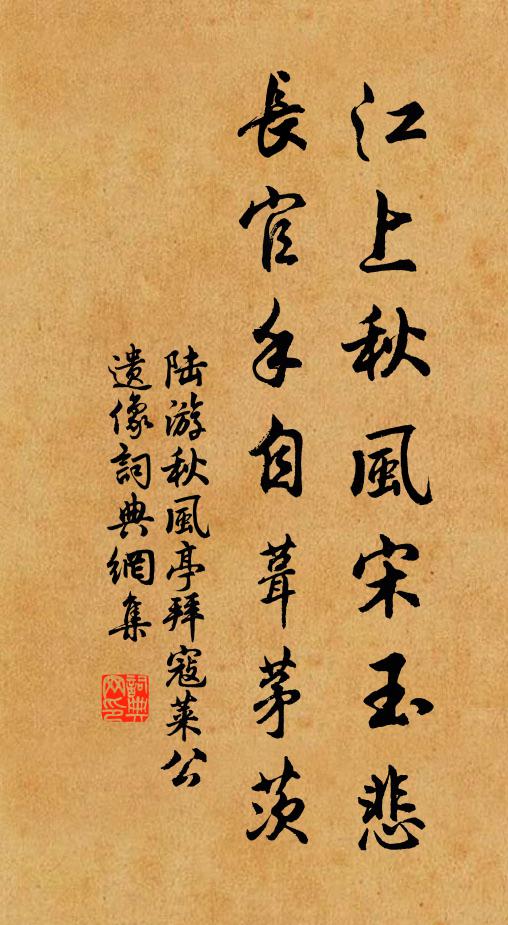 江上秋風宋玉悲
長官手自葺茅茨
陆游秋風亭拜寇莱公
遺像詞典網集
詞典网印